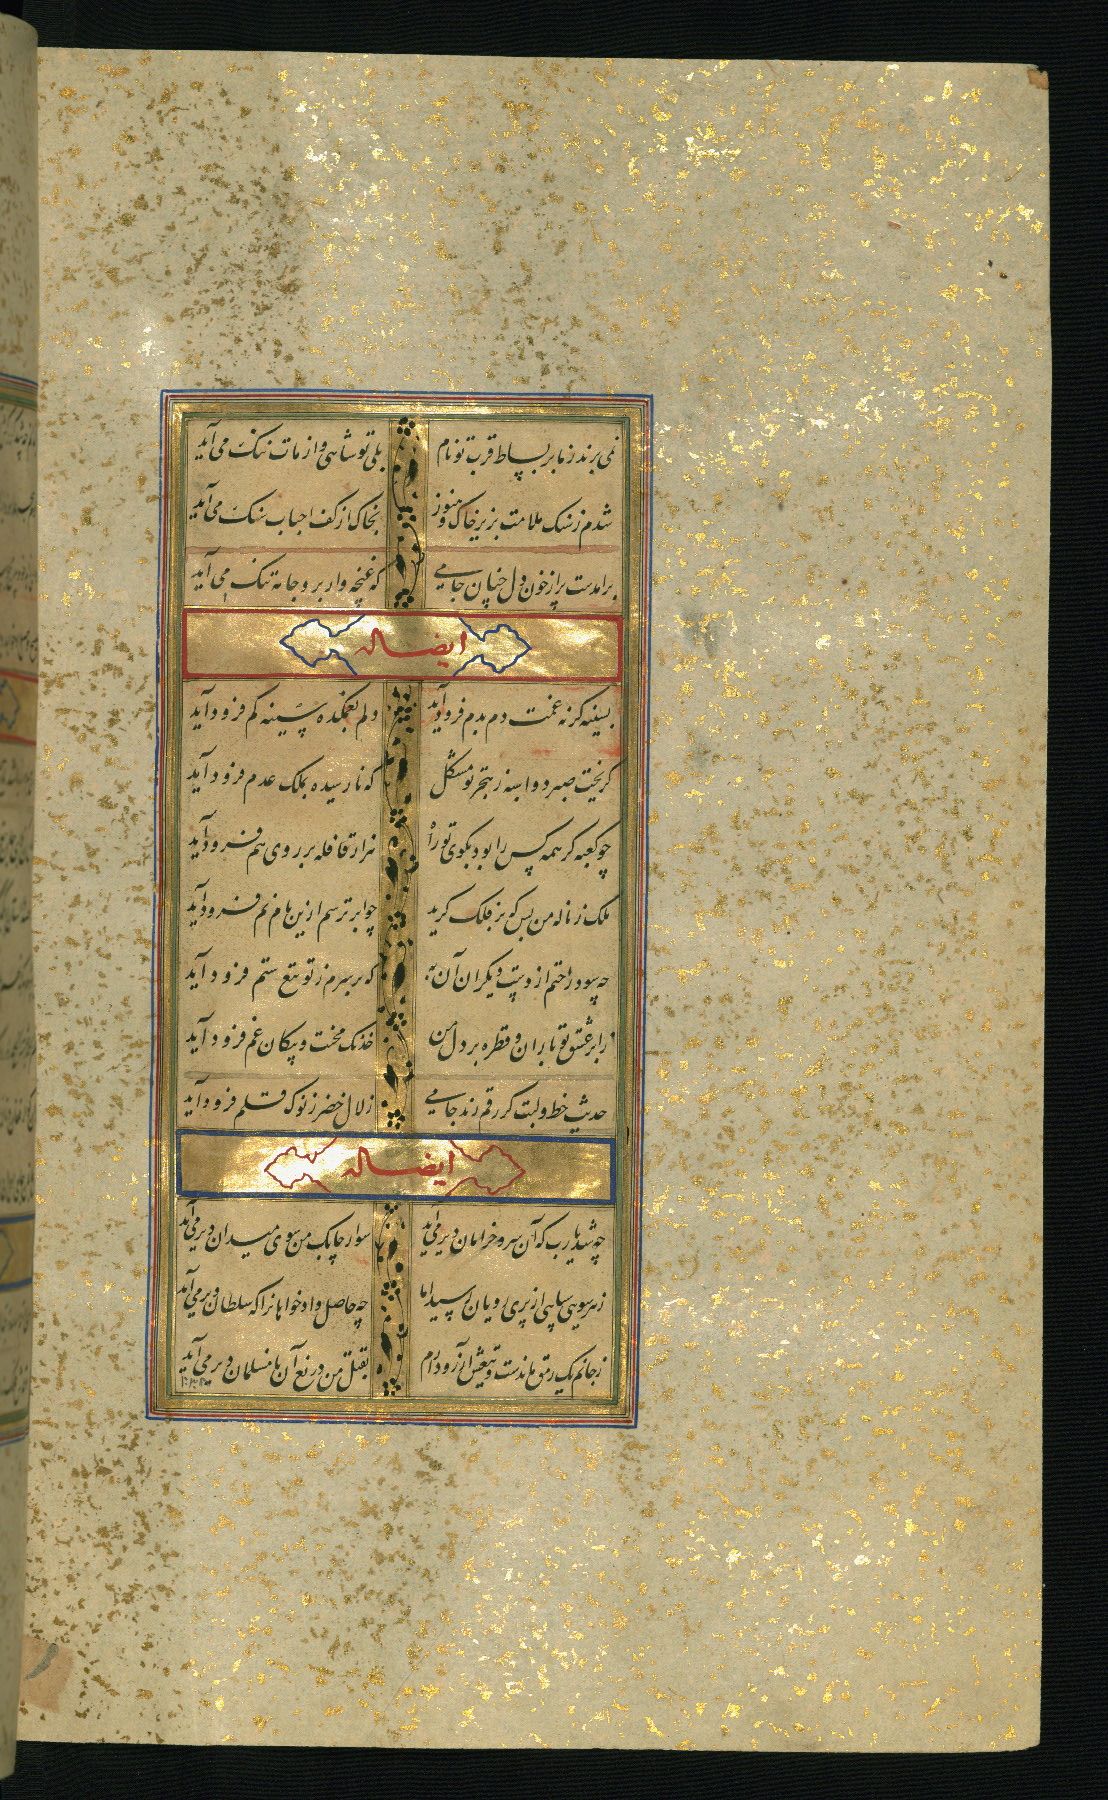 نمی برند ز ما بر بساط قرب تو نام بلی تو شاهی و از مات ننگ می آید
شدم ز سنگ ملامت بزیر خاک و هنوز بخاکم از کف احباب سنگ می آید
برآمدست پر از خون دل چنان جامی که غنچه وار برو جامه تنگ می آید
ایضاله
بسینه کز نه غمت دم بدم فرود آید دلم بغمکده سینه کم فرود آید
گریخت صبر دواسبه ز هجر تو مشکل که نارسیده بملک عدم فرود آید
چو کعبه گر همه کس را بود بکوی تو راه هزار قافله بر روی هم فرود آید
ملک ز ناله من بس که بر فلک گرید چو ابر ترسم ازین بام نم فرود آید
چه سود راحتم از دست دیگران آن به که بر سرم ز تو تیغ ستم فرود آید
ز ابر عشق تو باران و قطره بر دل من خدنک محنت و پیکان غم فرود آید
حدیث خط و لبت گر رقم زند جامی زلال خضر ز نوک قلم فرود آید
ایضاله
چو شد یارب که آن سرو خرامان دیر می آید سوار چابک من سوی میدان دیر می آید
ز هر سویی سپاهی از پری رویان رسید اما چه حاصل دادخواهانرا که سلطان دیر می آید
ز جانم یک رمق ماندست و تیغش آرزو دارم بقتل من دریغ آن نامسلمان دیر می آید